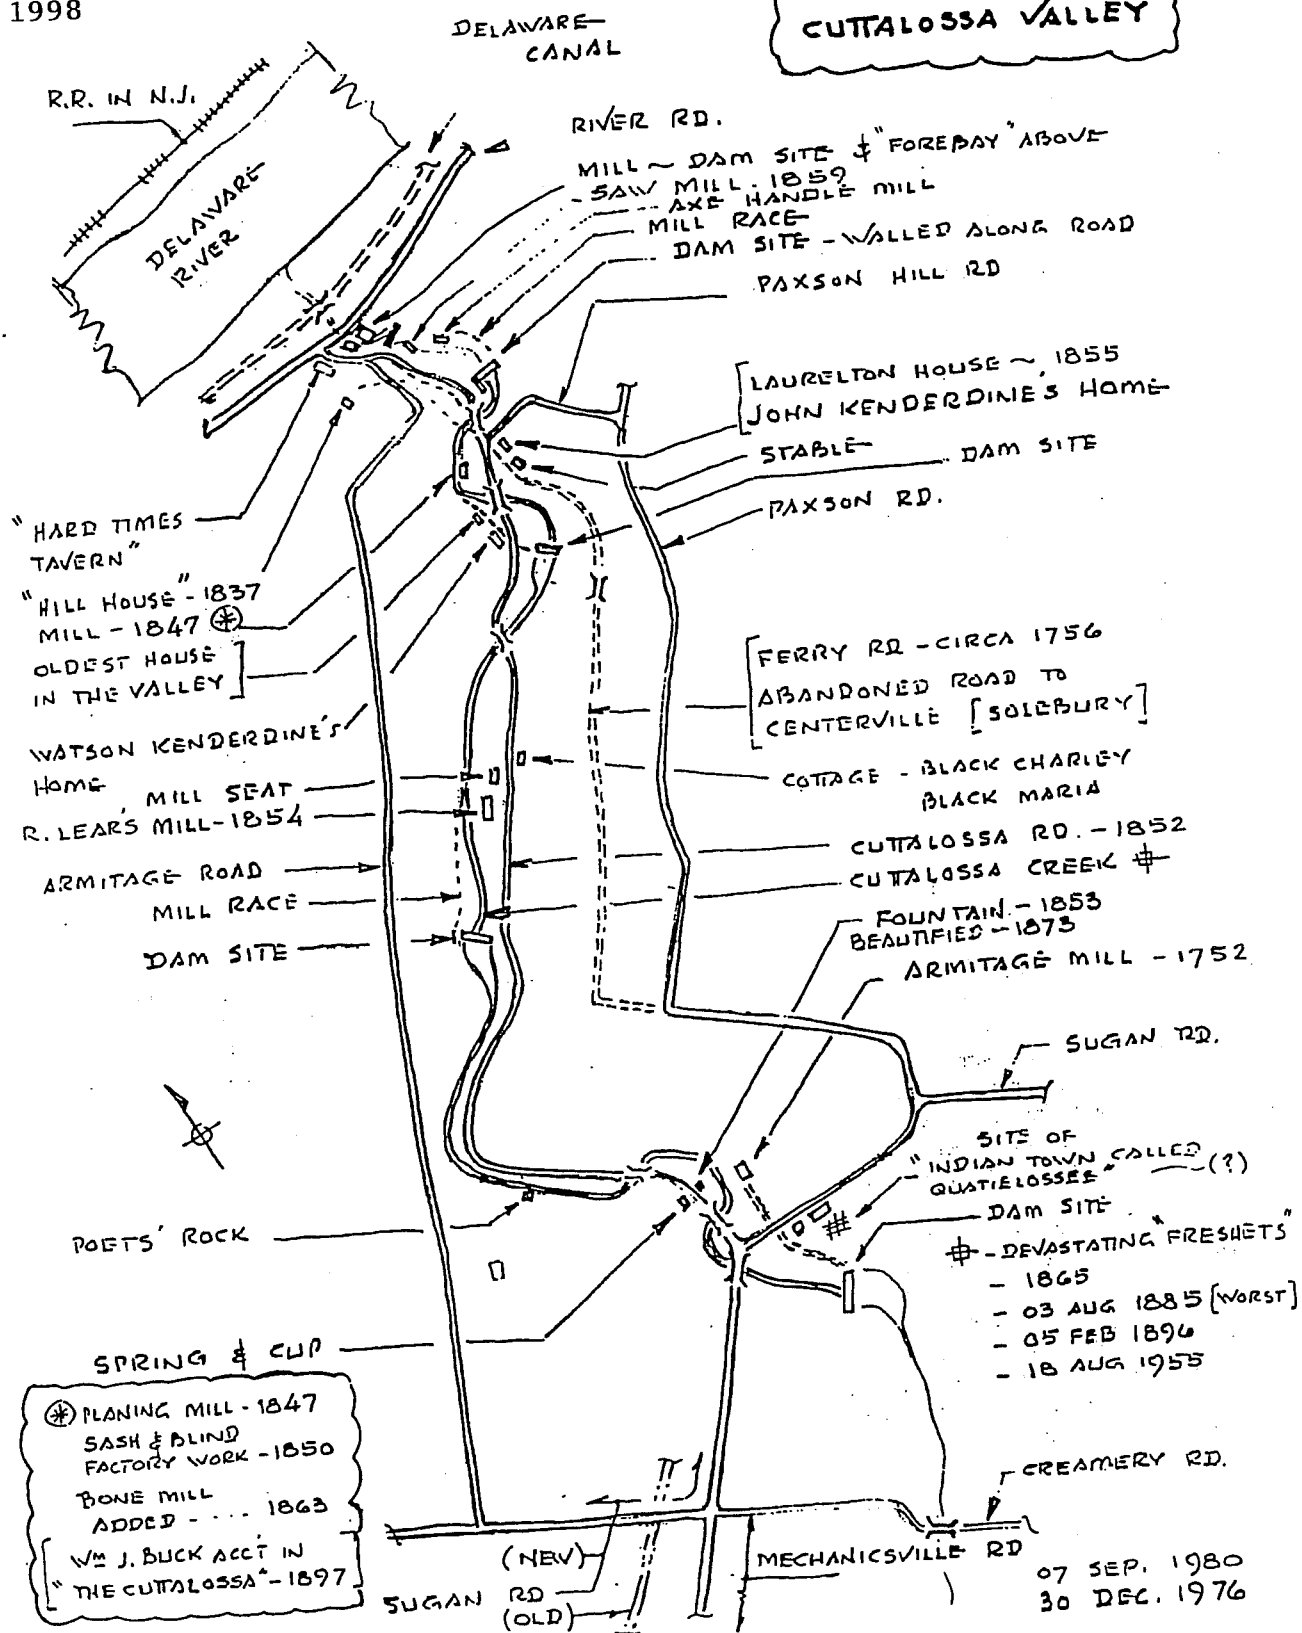 1998
DELAWARE
CANAL
CUTTALOSSA VALLEY
R.R. IN N.J.
RIVER RD.
MILL ~ DAM SITE & "FOREBAY" ABOVE
SAW MILL. 1859
AXE HANDLE MILL
MILL RACE
DAM SITE - WALLED ALONG ROAD
DELAWARE
RIVER
PAXSON HILL RD
LAURELTON HOUSE ~ 1855
JOHN KENDERDINE'S HOME
STABLE
DAM SITE
PAXSON RD.
"HARD TIMES
TAVERN"
"HILL HOUSE" - 1837
MILL - 1847 ⊛
OLDEST HOUSE
IN THE VALLEY
WATSON KENDERDINE'S
HOME
FERRY RD - CIRCA 1756
ABANDONED ROAD TO
CENTERVILLE [SOLEBURY]
COTTAGE - BLACK CHARLEY
BLACK MARIA
MILL SEAT
R. LEAR'S MILL - 1854
ARMITAGE ROAD
MILL RACE
DAM SITE
CUTTALOSSA RD. - 1852
CUTTALOSSA CREEK ⌗
FOUNTAIN - 1853
BEAUTIFIED - 1873
ARMITAGE MILL - 1752
SUGAN RD.
SITE OF
"INDIAN TOWN CALLED
QUATIELOSSEE" (?)
DAM SITE
⌗ - DEVASTATING "FRESHETS"
- 1865
- 03 AUG 1885 [WORST]
- 05 FEB 1896
- 18 AUG 1955
POETS' ROCK
SPRING & CUP
⊛ PLANING MILL - 1847
SASH & BLIND
FACTORY WORK - 1850
BONE MILL
ADDED - ... 1863
[WM J. BUCK ACC'T IN
"THE CUTTALOSSA" - 1897]
CREAMERY RD.
MECHANICSVILLE RD
(NEW)
SUGAN RD
(OLD)
07 SEP. 1980
30 DEC. 1976